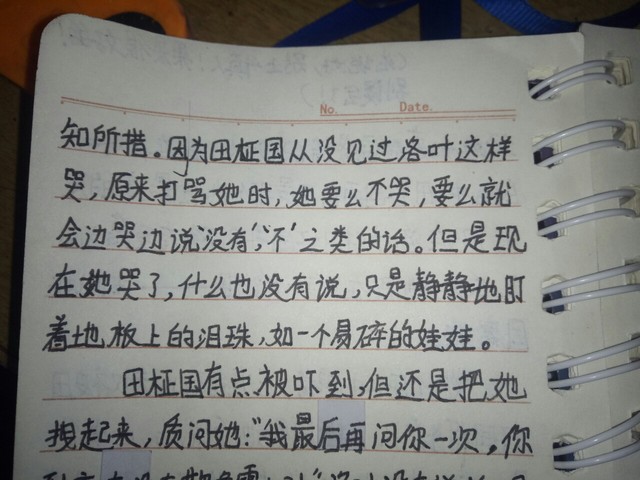 No. Date.
知所措。因为田柾国从没见过洛叶这样
哭，原来打骂她时，她要么不哭，要么就
会边哭边说'没有'，'不'之类的话。但是现
在她哭了，什么也没有说，只是静静地盯
着地板上的泪珠，如一个易碎的娃娃。
田柾国有点被吓到，但还是把她
拽起来，质问她："我最后再问你一次，你